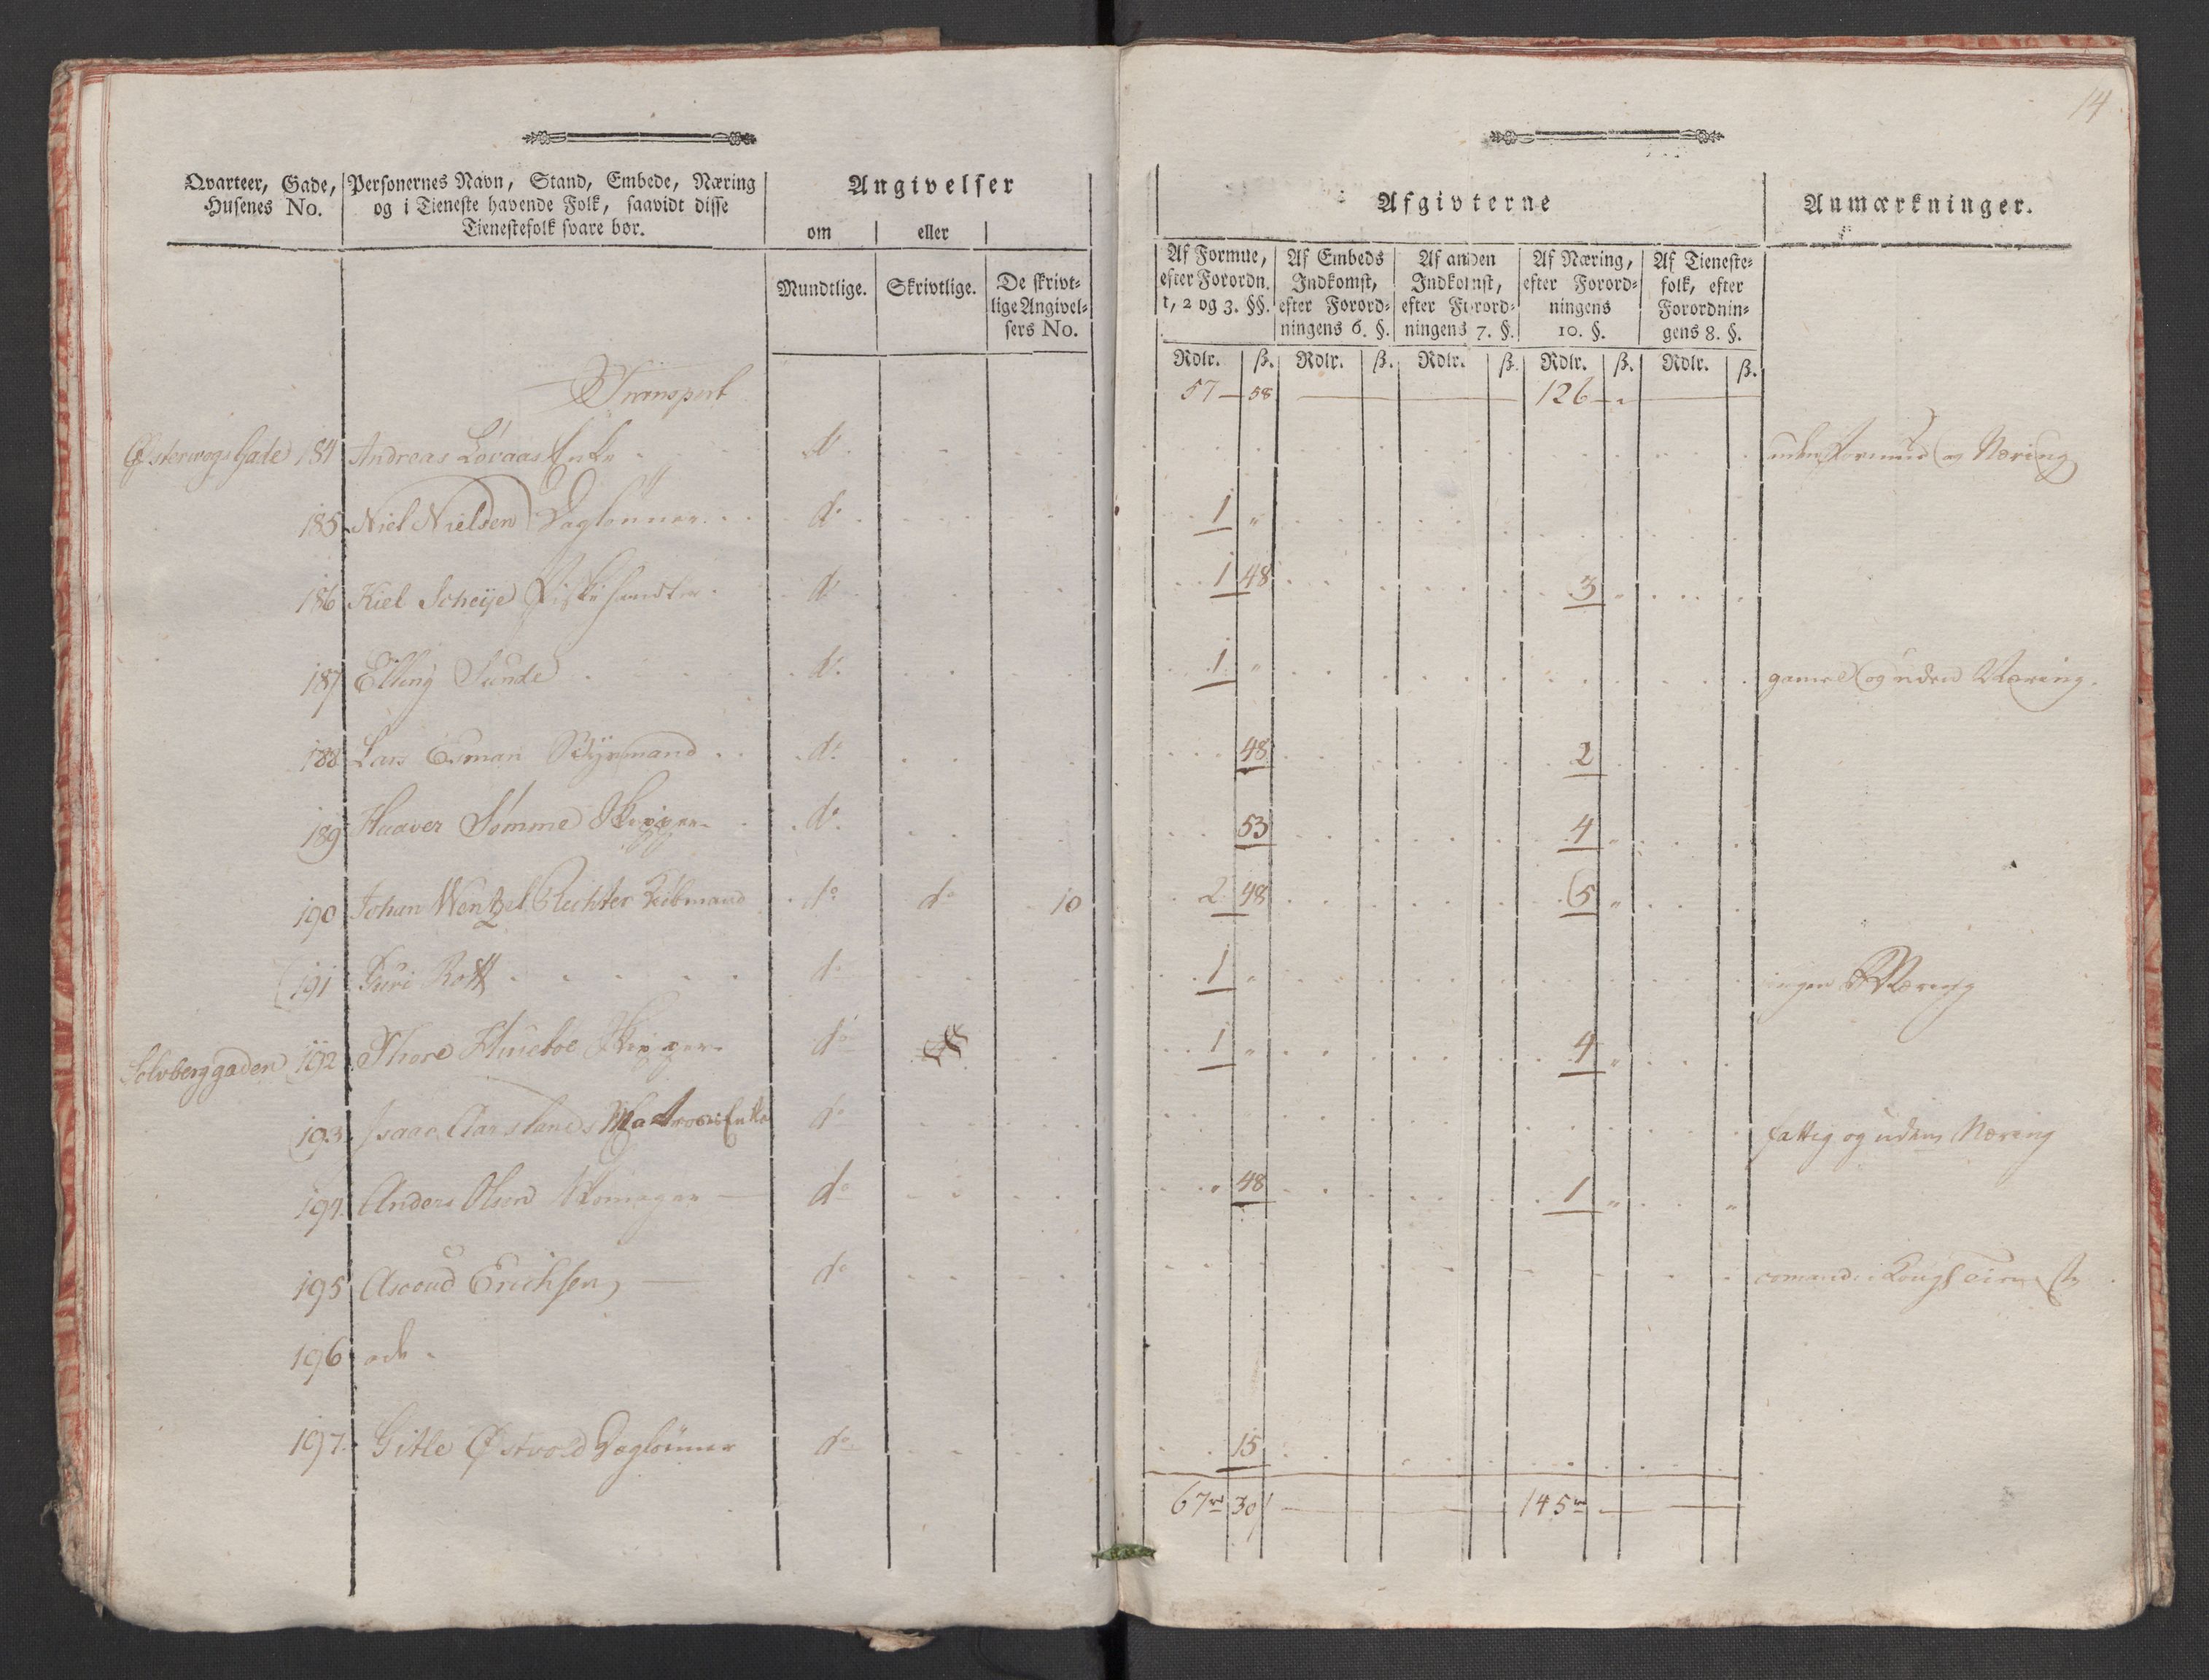 14
Qvarteer, Gade, Husenes No.
Personernes Navn, Stand, Embede, Næring og i Tieneste havende Folk, saavidt disse Tienestefolk svare bør.
Angivelser
om | eller
Mundtlige. | Skrivtlige. | De skrivtlige Angivelsers No.
Afgivterne
Anmærkninger.
Af Formue, efter Forordn. 1, 2 og 3. §§.
Af Embeds Indkomst, efter Forordningens 6. §.
Af anden Indkomst, efter Forordningens 7. §.
Af Næring, efter Forordningens 10. §.
Af Tienestefolk, efter Forordningens 8. §.
Rdlr. | ß. | Rdlr. | ß. | Rdlr. | ß. | Rdlr. | ß. | Rdlr. | ß.
Transport 57 — 58 126 —
Østervogs Gade 184 Andreas Lovaas Enke do uden Formue og Næring
185 Niel Nielsen Daglonner do 1 "
186 Kiel Scheije Fiskehandler do 1 48 3 "
187 Elling Sunde do 1 " gamel og uden Næring.
188 Lars Osman Styrmand do 48 2
189 Haaver Sømme Skipper do 53 4 "
190 Johan Wentzel Richter Kiøbmand do do 10 2 48 5 "
191 Guri Rott do 1 " ingen Næring
Solvberggaden 192 Thore Hueboe Skipper do 1 " 4 "
193 Isaac Aarslands Matroes Enke do fattig og uden Næring
194. Anders Olsen Skomager — do " 48 1 " "
195 Asoud Erichsen — do
196 øde
197. Gitle Østvold Daglonner do 15
67 rd 30 145 rd